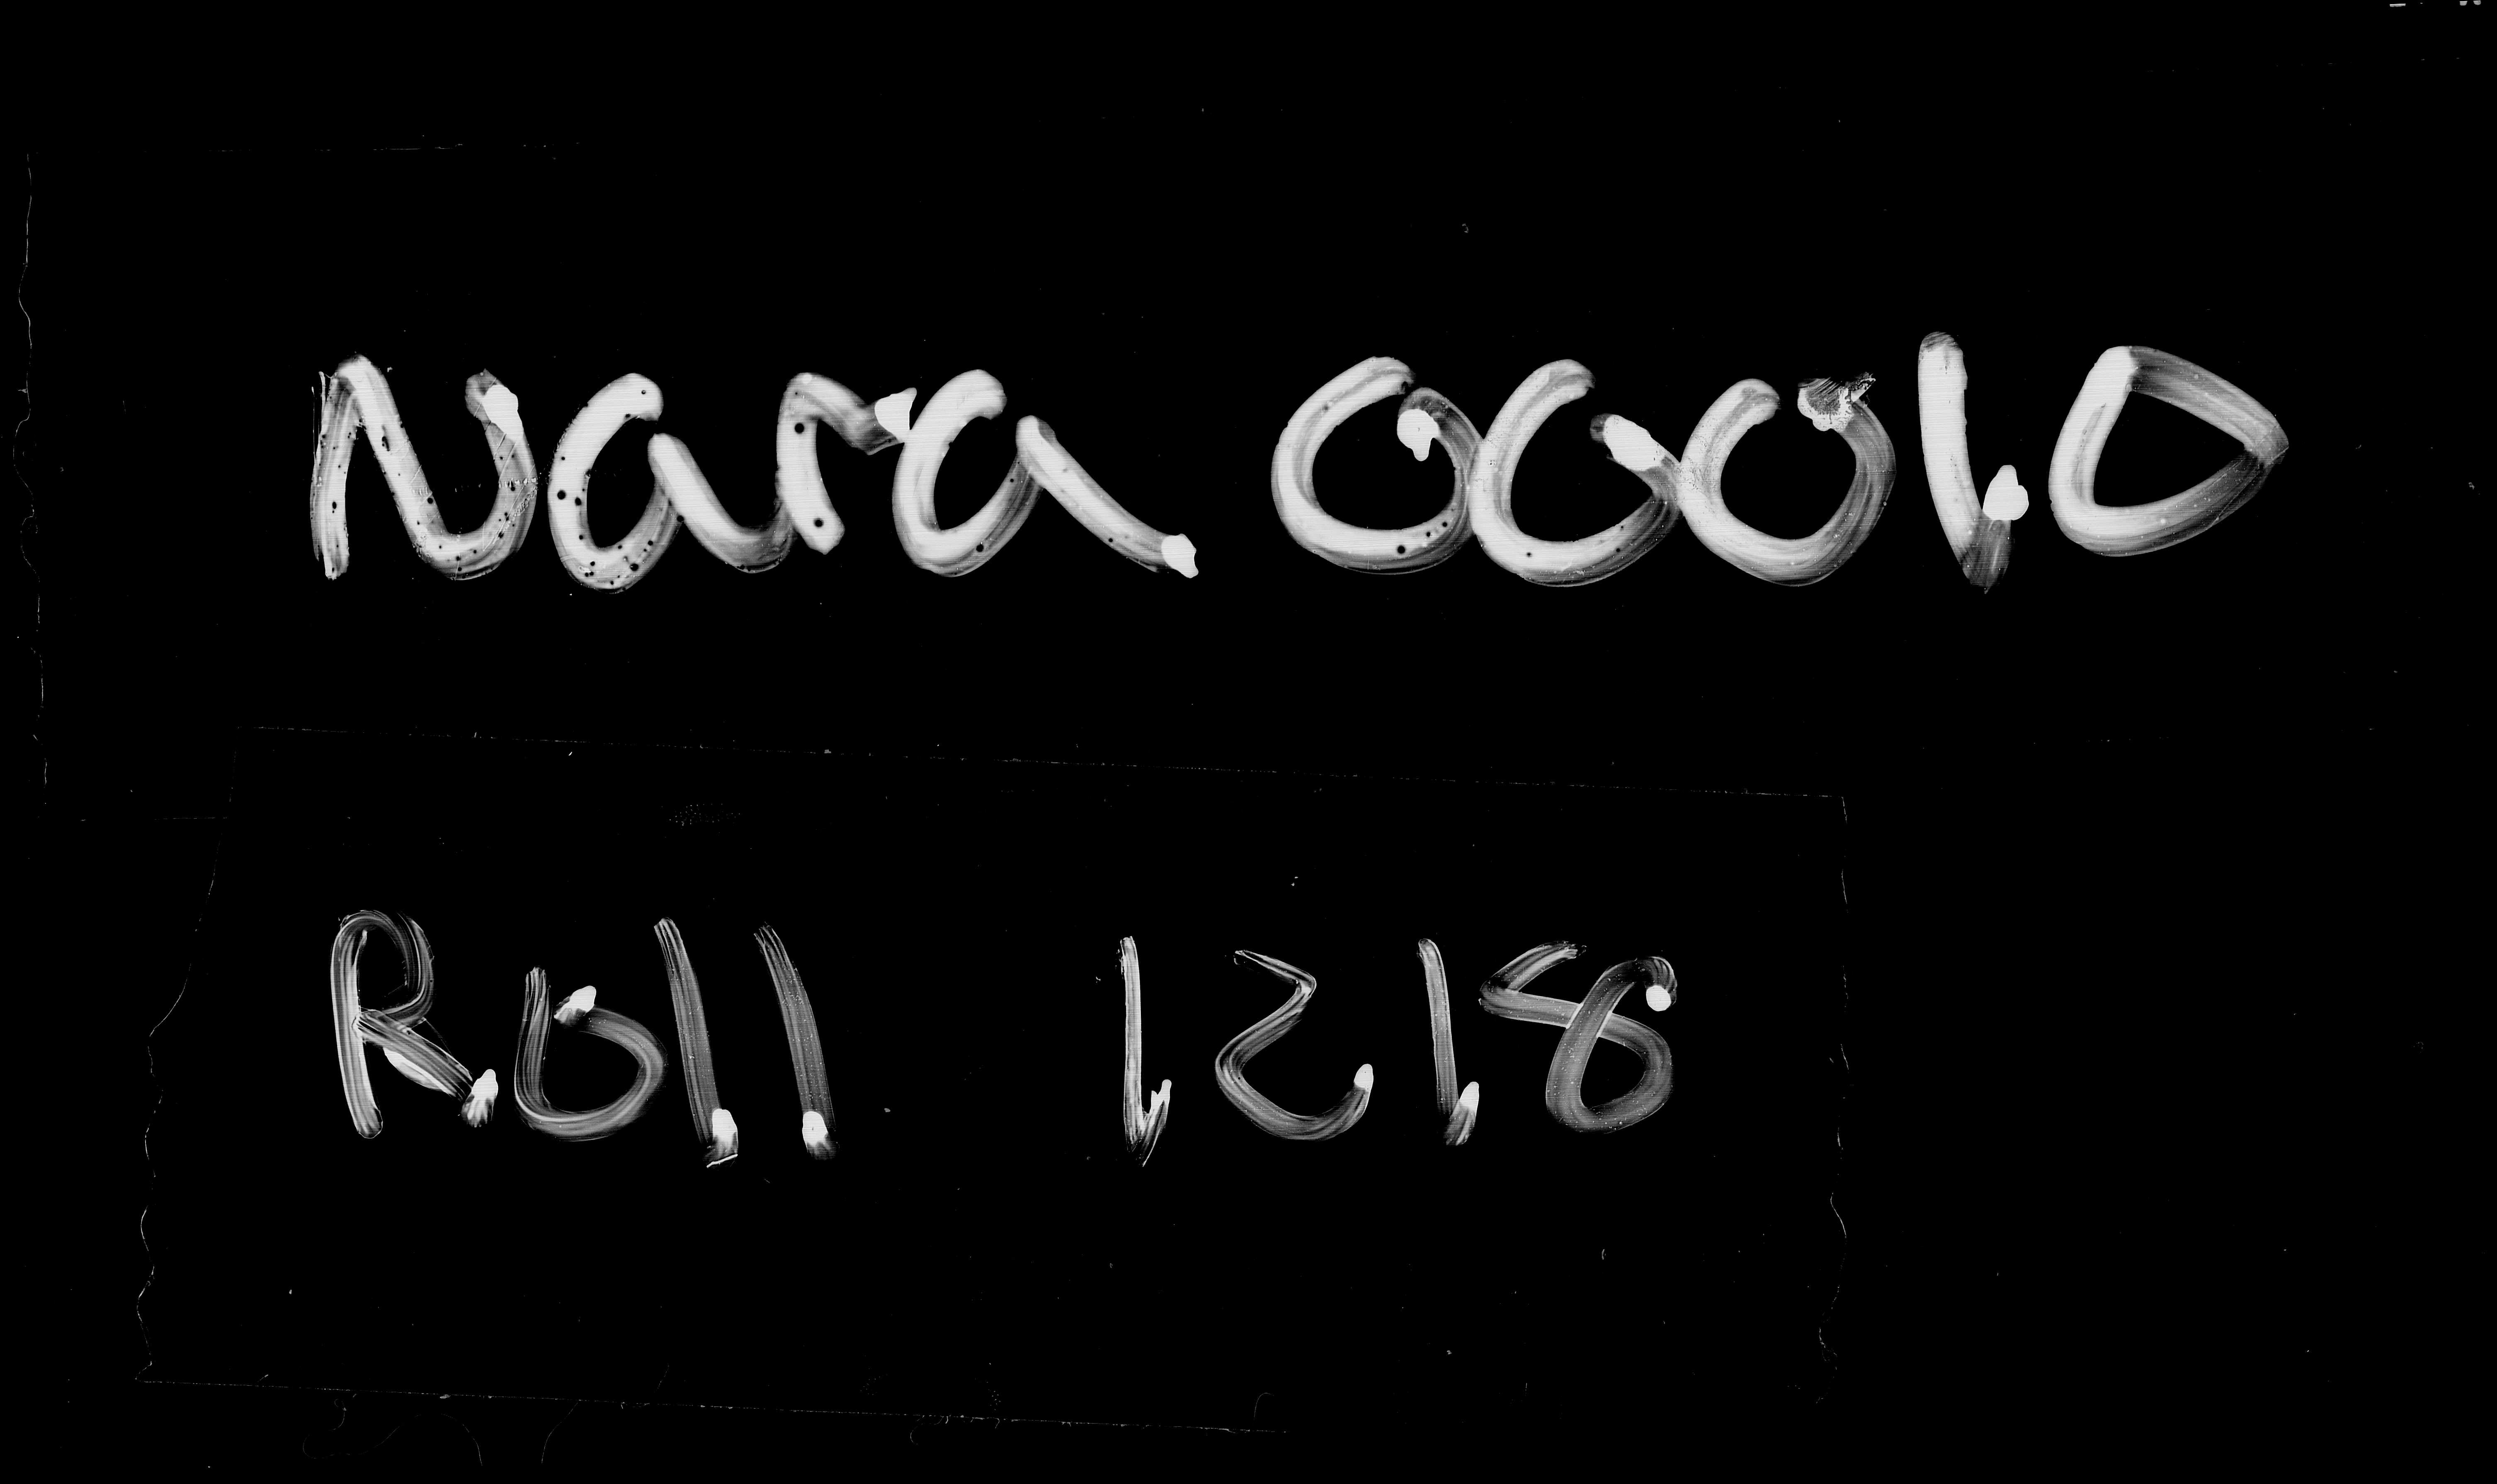 Nara 00010
Roll 1218